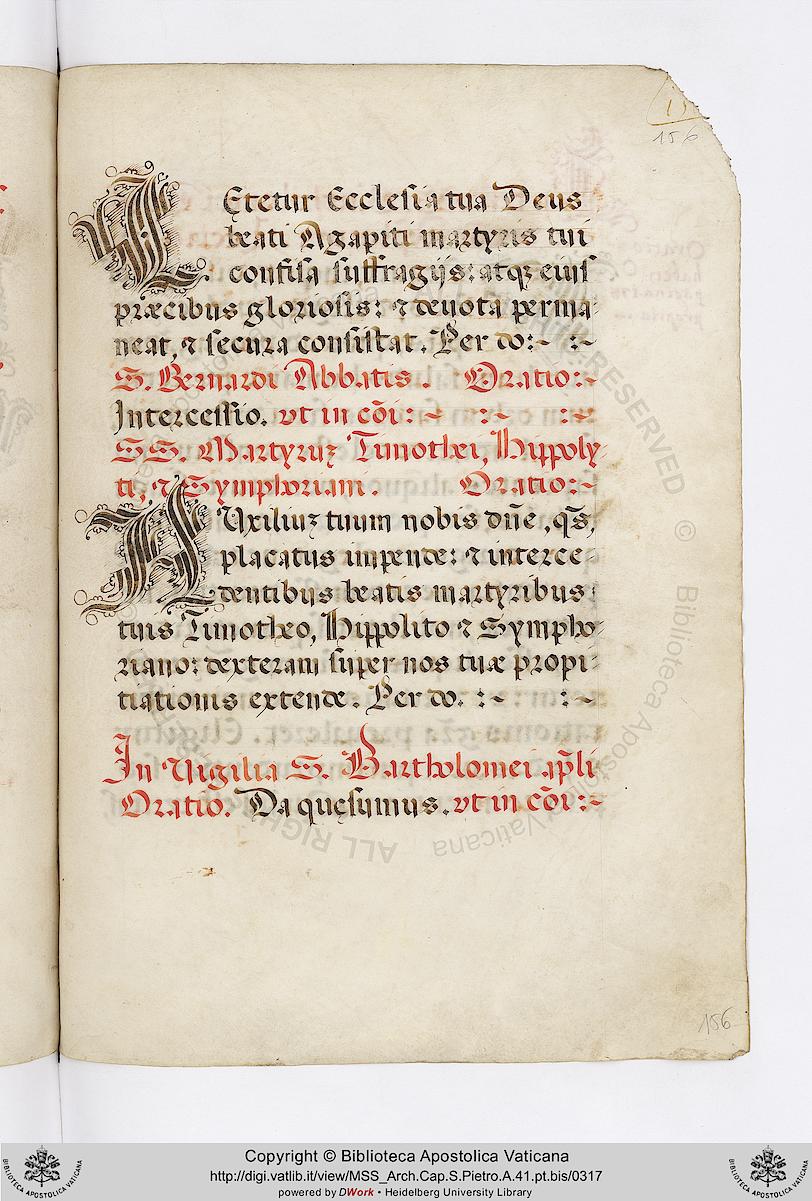 156
LEtetur Ecclesia tua Deus
beati Agapiti martyris tui
confisa suffragijs: atq; eius
præcibus gloriosis: & deuota perma-
neat, & secura consistat. Per do:~ :~
S. Bernardi Abbatis. Oratio:~
Intercessio. vt in cõi:~ :~ :~
SS. Martyruz Timothei, Hippoly-
ti, & Symphoriani. Oratio:~
AUxiliuz tuum nobis dñe, q̃s,
placatus impende: & interce-
dentibus beatis martyribus
tuis Timotheo, Hippolito & Sympho-
riano: dexteram super nos tuæ propi-
tiationis extende. Per do. :~ :~
In Uigilia S. Bartholomei apłi
Oratio. Da quęsumus. vt in cõi:~
156
ALL RIGHTS RESERVED © Biblioteca Apostolica Vaticana
Copyright © Biblioteca Apostolica Vaticana
http://digi.vatlib.it/view/MSS_Arch.Cap.S.Pietro.A.41.pt.bis/0317
powered by DWork • Heidelberg University Library
BIBLIOTECA APOSTOLICA VATICANA
BIBLIOTECA APOSTOLICA VATICANA